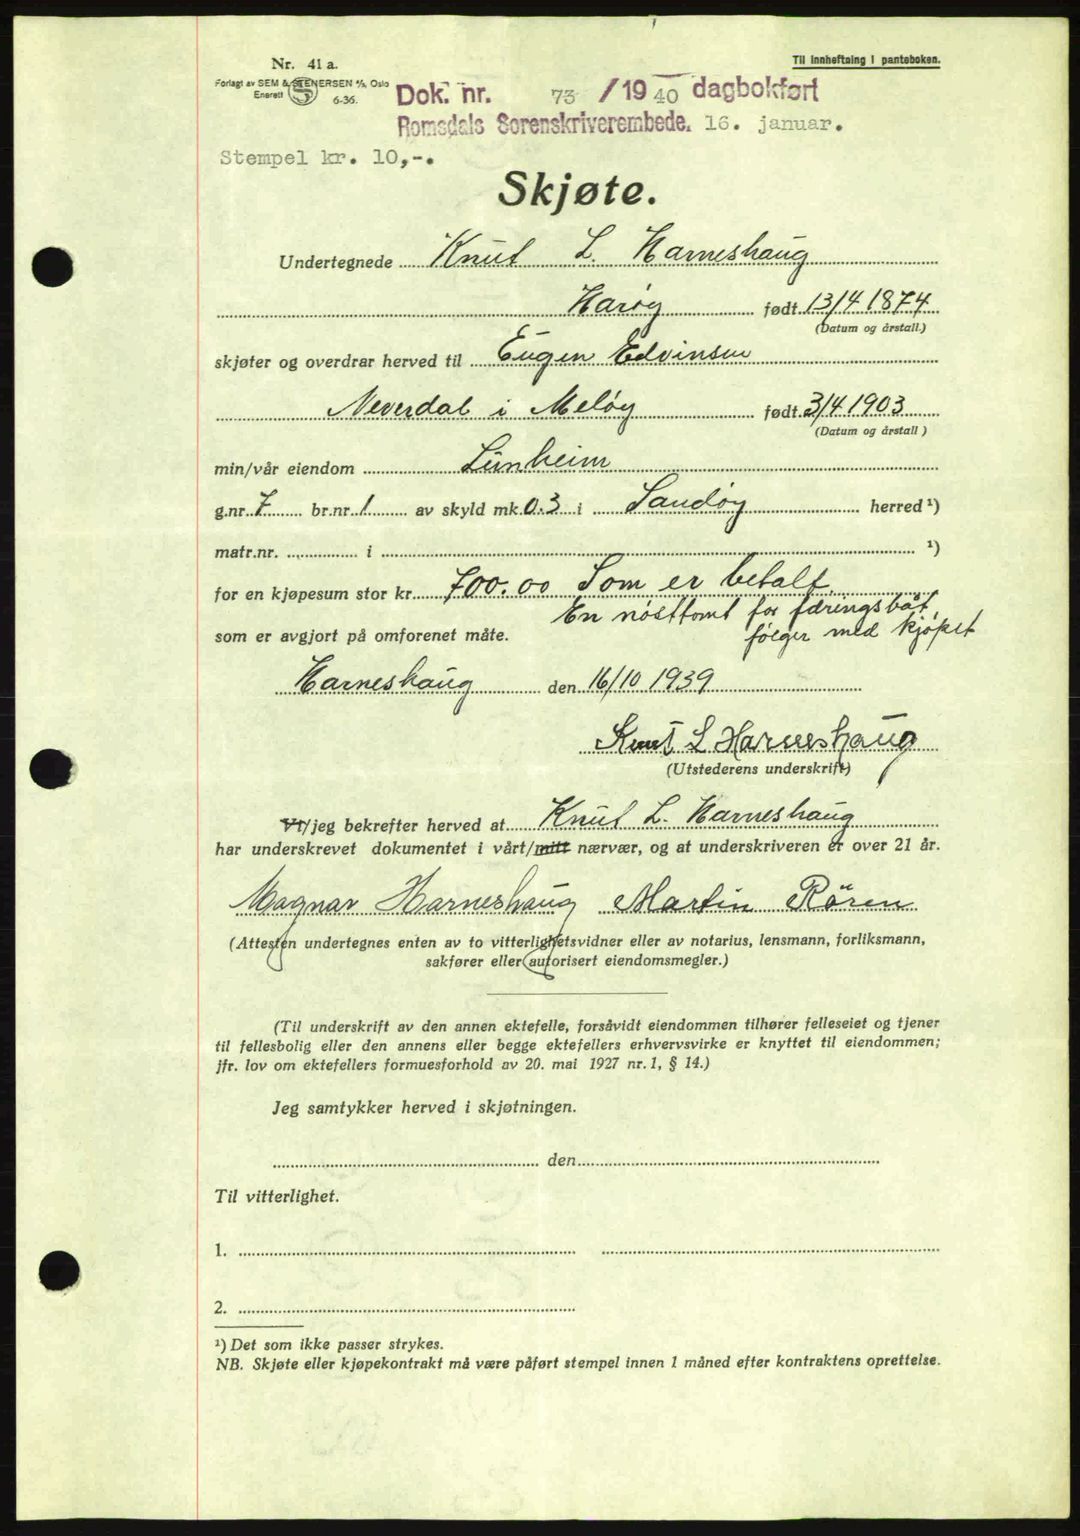 Nr. 41 a.
Til innheftning i panteboken.
Forlagt av SEM & STENERSEN A/S, Oslo
Enerett 6-36.
Dok. nr. 73 /1940 dagbokført
Romsdals Sorenskriverembede. 16. januar.
Stempel kr. 10,-.
Skjøte.
Undertegnede Knut L. Harneshaug
Harøy født 13/4 1874
(Datum og årstall.)
skjøter og overdrar herved til Eugen Edvinsen
Neverdal i Meløy født 3/4 1903
(Datum og årstall)
min/vår eiendom Lünheim
g.nr. 7 br.nr. 1 av skyld mk. 0.3 i Sandøy herred ¹)
matr.nr. i ¹)
for en kjøpesum stor kr. 700.00 Som er betalt.
En nøsttomt for færingsbåt
som er avgjort på omforenet måte. følger med kjøpet
Harneshaug den 16/10 1939
Knut L Harneshaug
(Utstederens underskrift)
Vi/jeg bekrefter herved at Knut L. Harneshaug
har underskrevet dokumentet i vårt/mitt nærvær, og at underskriveren er over 21 år.
Magnar Harneshaug Martin Røren
(Attesten undertegnes enten av to vitterlighetsvidner eller av notarius, lensmann, forliksmann,
sakfører eller autorisert eiendomsmegler.)
(Til underskrift av den annen ektefelle, forsåvidt eiendommen tilhører felleseiet og tjener
til fellesbolig eller den annens eller begge ektefellers erhvervsvirke er knyttet til eiendommen;
jfr. lov om ektefellers formuesforhold av 20. mai 1927 nr. 1, § 14.)
Jeg samtykker herved i skjøtningen.
den
Til vitterlighet.
1.
2.
¹) Det som ikke passer strykes.
NB. Skjøte eller kjøpekontrakt må være påført stempel innen 1 måned efter kontraktens oprettelse.